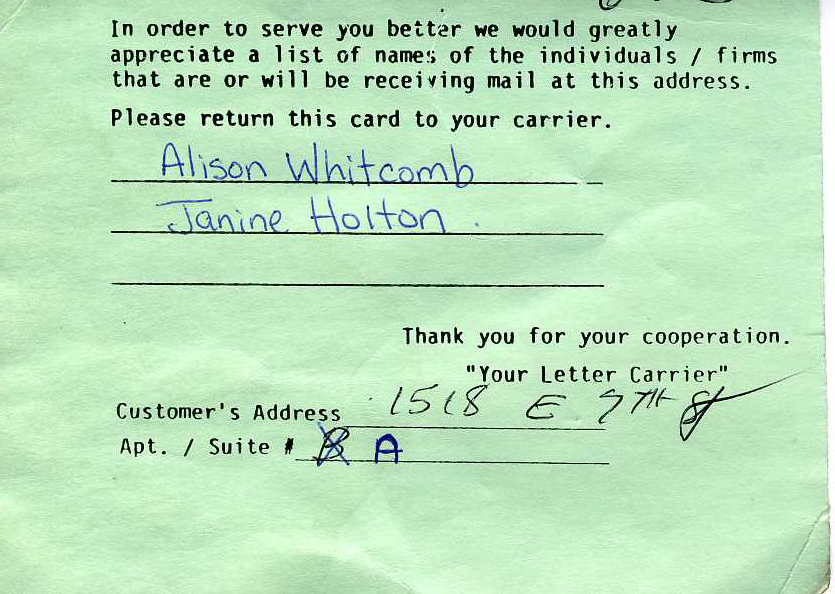 In order to serve you better we would greatly
appreciate a list of names of the individuals / firms
that are or will be receiving mail at this address.
Please return this card to your carrier.
Alison Whitcomb
Janine Holton.
Thank you for your cooperation.
"Your Letter Carrier"
Customer's Address 1518 E 7TH St
Apt. / Suite # B A